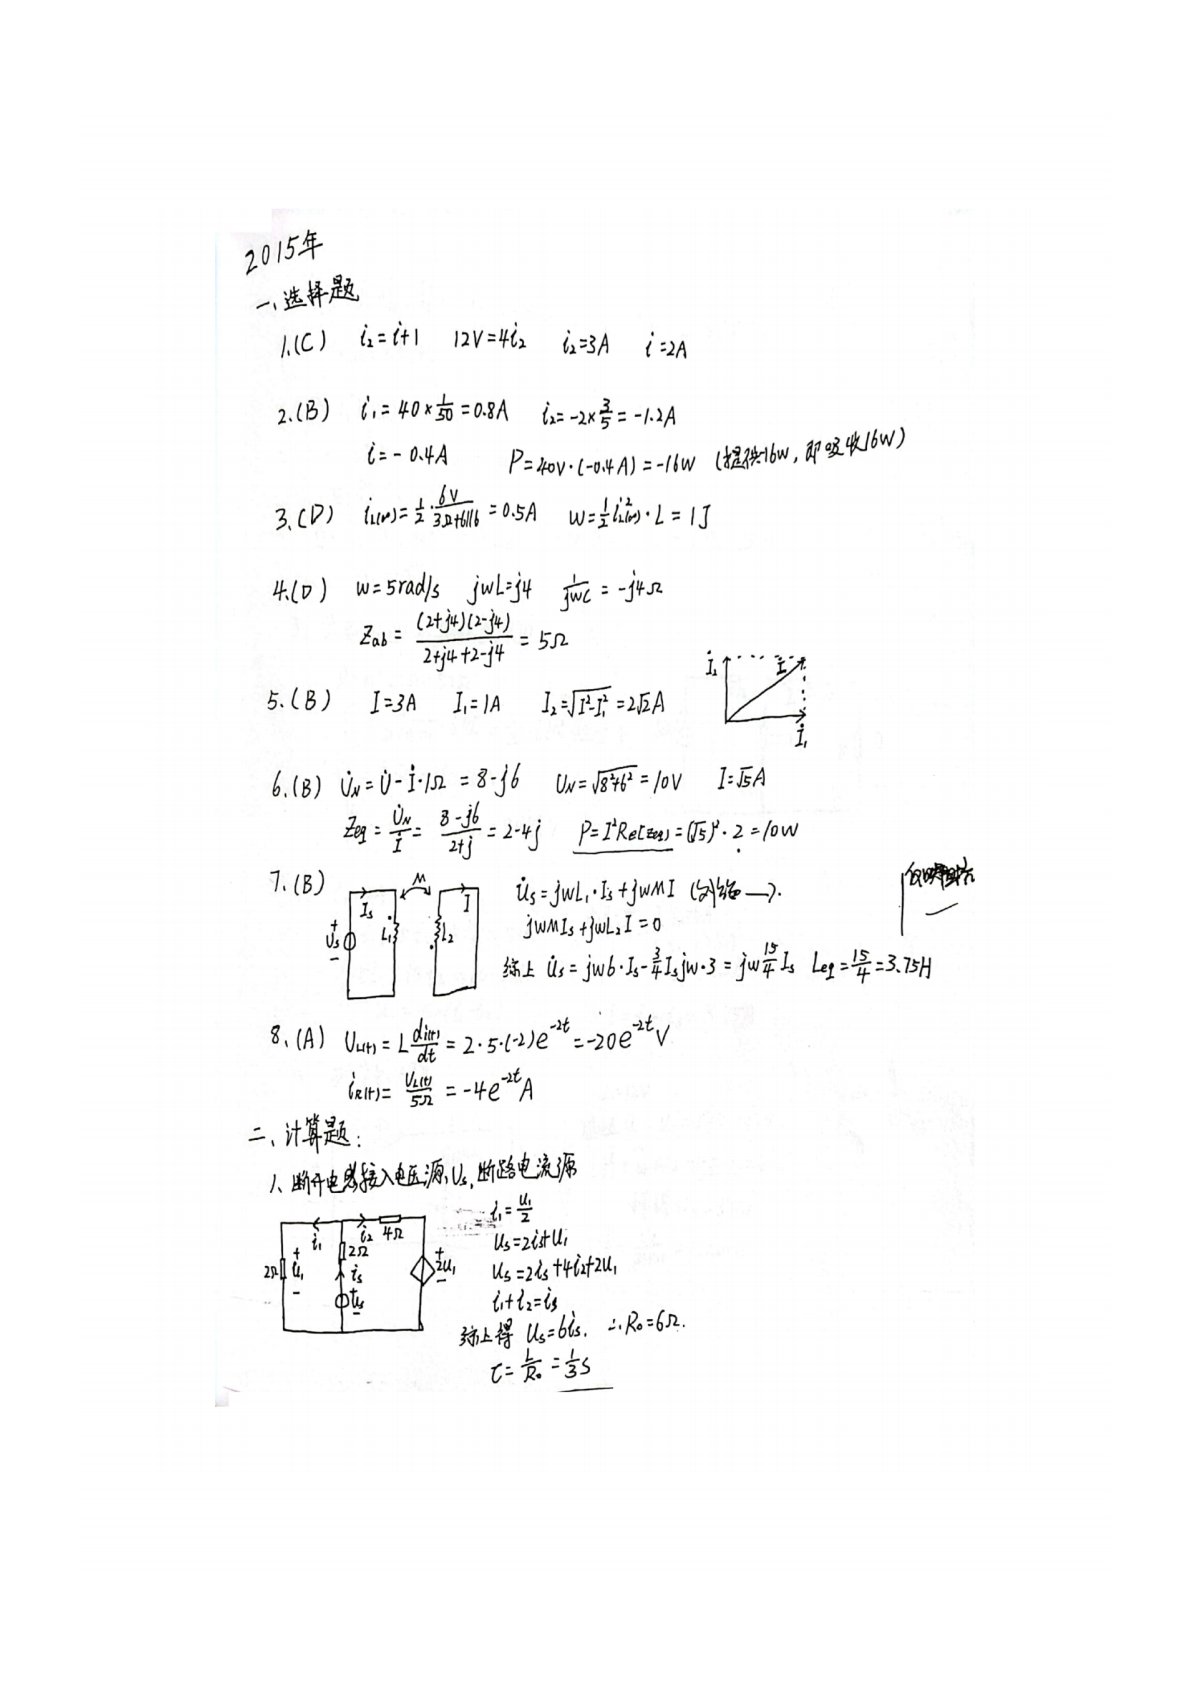 2015年
一、选择题
1.(C) i₂=i+1 12V=4i₂ i₂=3A i=2A
2.(B) i₁=40×1/50=0.8A i₂=-2×3/5=-1.2A
i=-0.4A P=40V·(-0.4A)=-16W (提供-16W, 即吸收16W)
3.(D) iL(∞)=1/2·6V/(3Ω+6//6)=0.5A W=1/2 iL²(∞)·L=1J
4.(D) w=5rad/s jwL=j4 1/jwC=-j4Ω
Zab=(2+j4)(2-j4)/(2+j4+2-j4)=5Ω
İ₂ İ
5.(B) I=3A I₁=1A I₂=√(I²-I₁²)=2√2A
İ₁
6.(B) U̇N=U̇-İ·1Ω=8-j6 UN=√(8²+6²)=10V I=√5A
Zeq=U̇N/İ=(8-j6)/(2+j)=2-4j P=I²Re[Zeq]=(√5)²·2=10W
7.(B) M U̇s=jwL₁·Is+jwMI
Is I
Us L₁ L₂ jwMIs+jwL₂I=0
综上 U̇s=jw6·Is-3/4Isjw·3=jw15/4Is Leq=15/4=3.75H
8.(A) UL(t)=L di(t)/dt=2·5·(-2)e^-2t=-20e^-2t V
iR(t)=UL(t)/5Ω=-4e^-2t A
二、计算题:
1、断开电感接入电压源Us,断路电流源
i₁ i₂ 4Ω i₁=u₁/2
2Ω Us=2is+U₁
2Ω u₁ is 2u₁ Us=2is+4i₂+2u₁
Us i₁+i₂=is
综上得 Us=6is. ∴R₀=6Ω.
τ=L/R₀=1/3S